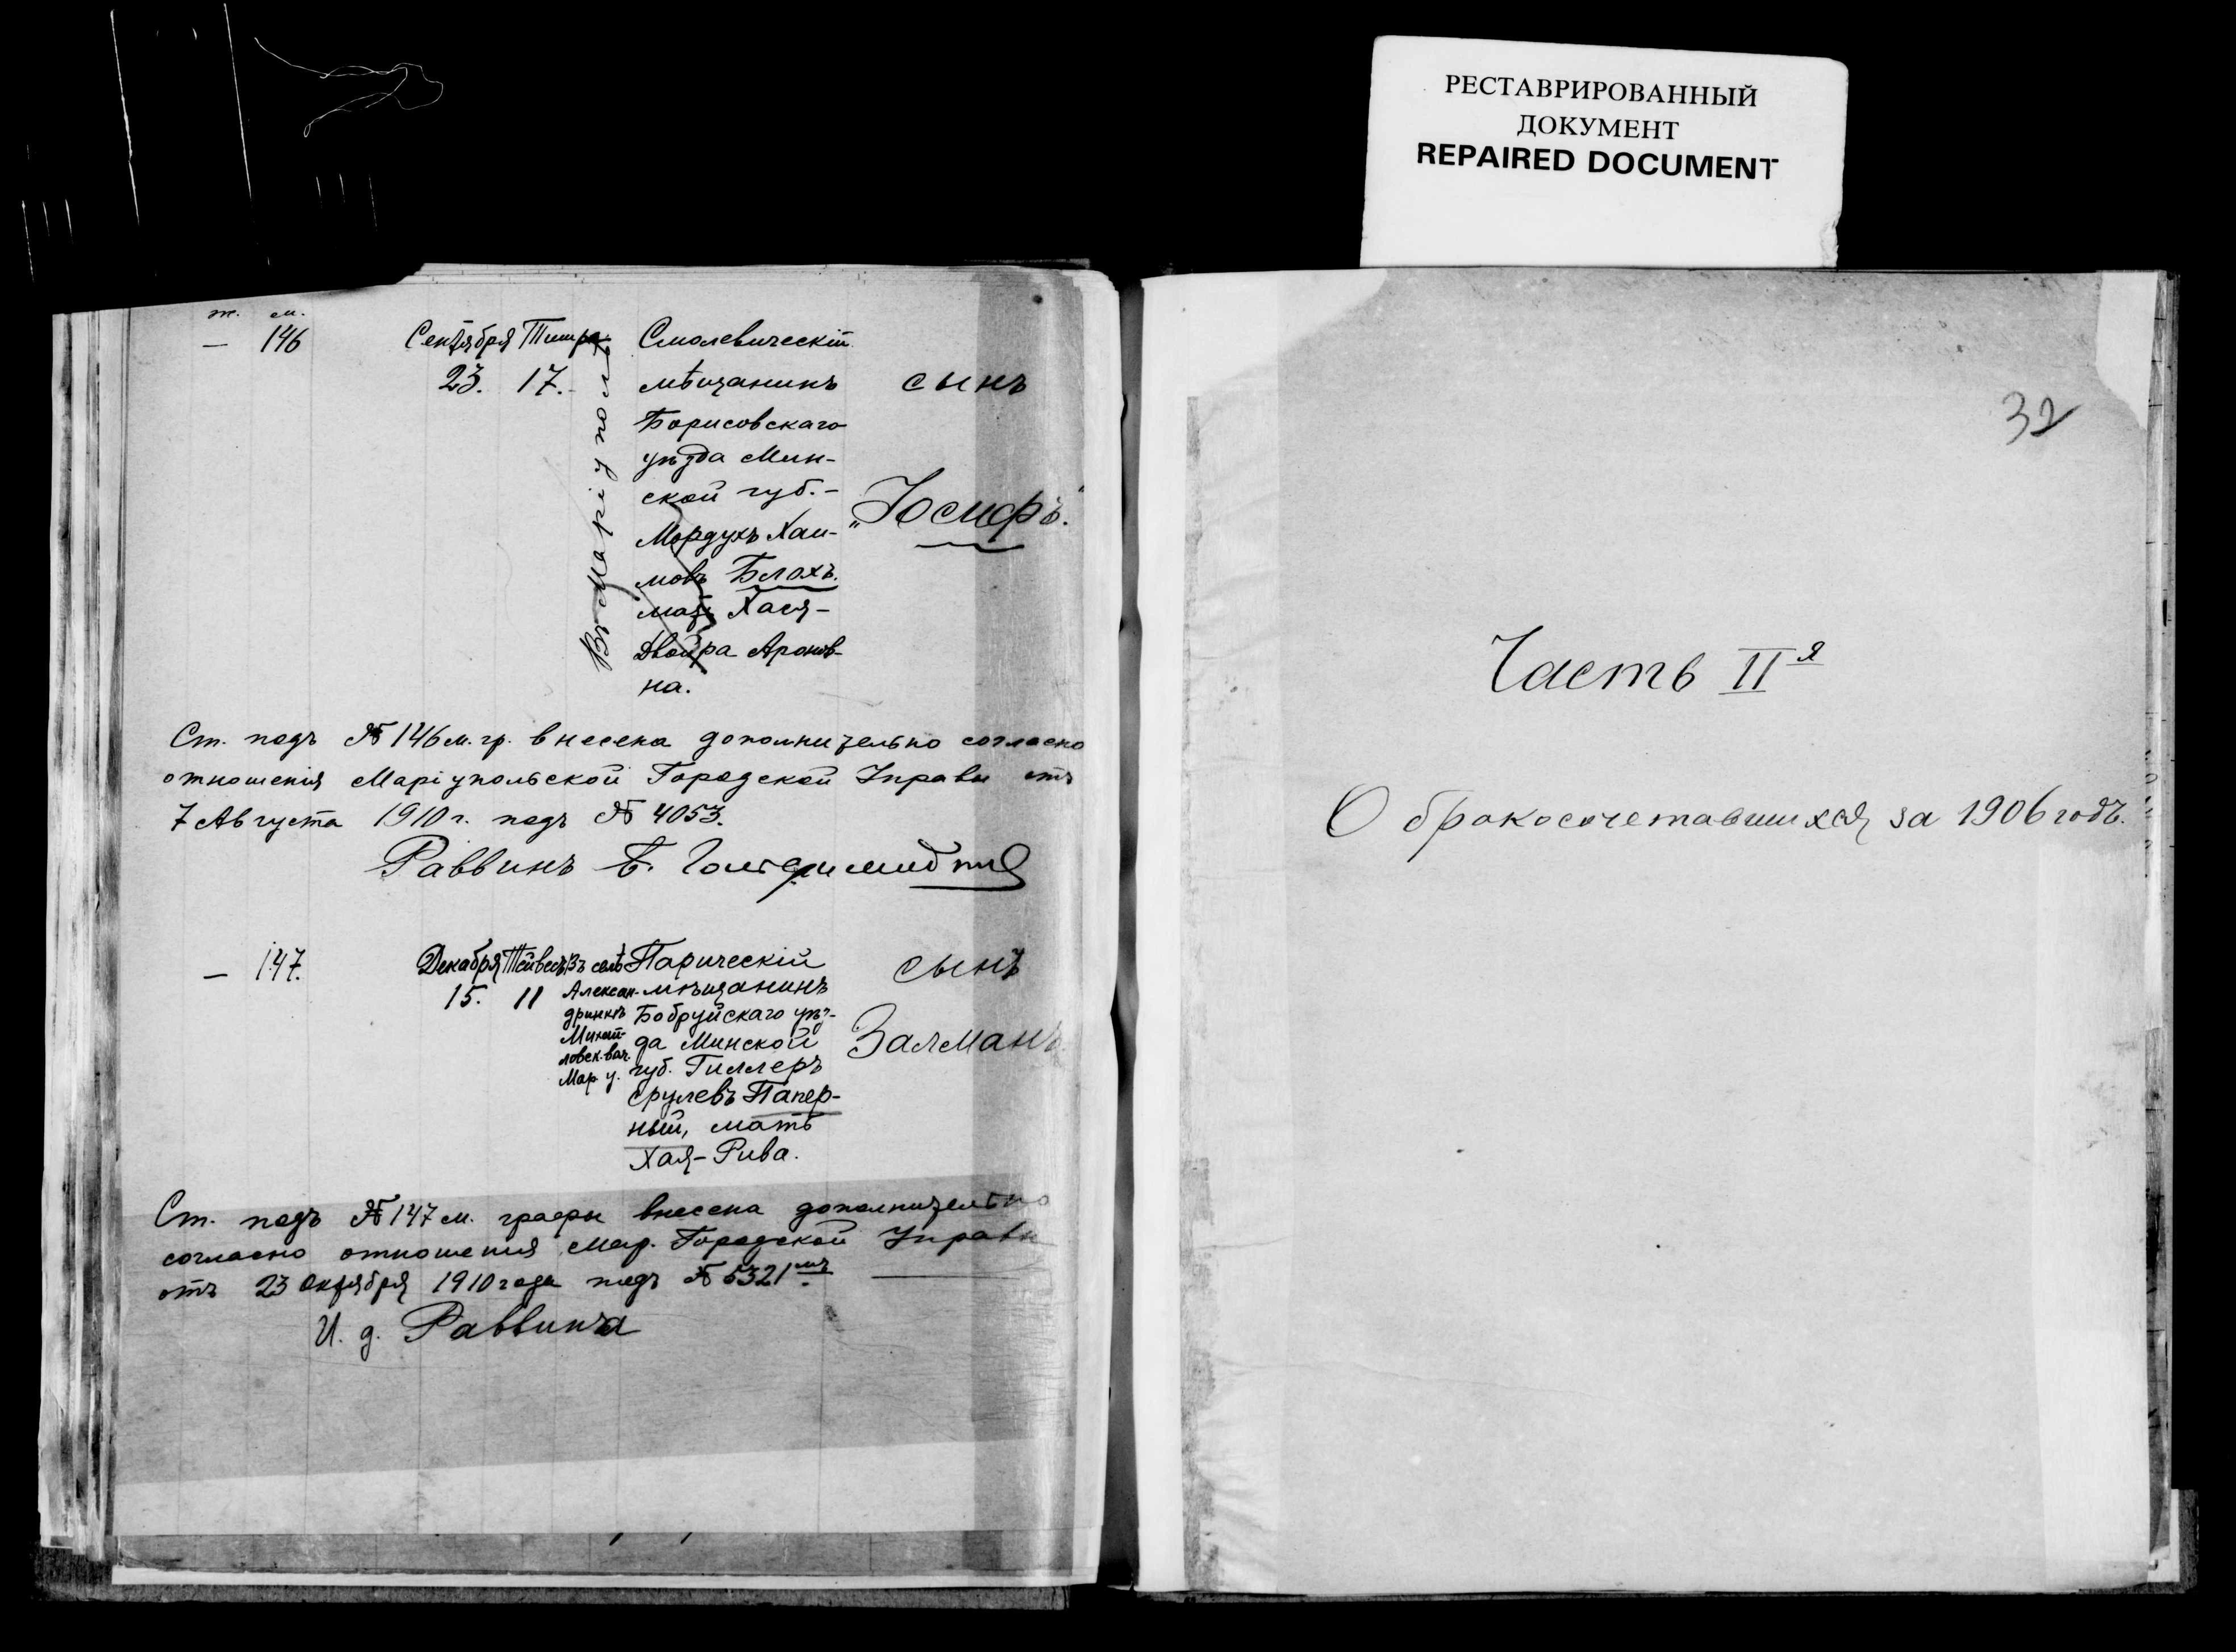 РЕСТАВРИРОВАННЫЙ
ДОКУМЕНТ
REPAIRED DOCUMENT
ж. м.
— 146
Сентября Тишра
23. 17.
Въ Маріуполѣ
Смолевическій
мѣщанинъ
Борисовскаго
уѣзда Мин-
ской губ. -
Мордухъ Хаи-
мовъ Блохъ.
мать Хася-
Двойра Аронов-
на.
сынъ
„Іосифъ."
Ст. подъ № 146 м. гр. внесена дополнительно согласно
отношенія Маріупольской Городской Управы отъ
7 Августа 1910 г. подъ № 4053.
Раввинъ
— 147.
Декабря Тейвесъ
15. 11
Въ селѣ
Алексан-
Мар. у.
Паричeскій
мѣщанинъ
Бобруйскаго уѣз-
да Минской
губ. Гиллеръ
Срулевъ Папер-
ный, мать
Хая-Рива.
сынъ
Залманъ.
Ст. подъ № 147 м. графы внесена дополнительно
согласно отношенія Мар. Городской Управы
отъ 23 Октября 1910 года подъ № 5321мъ.
И. д. Раввина
32
Часть IIя
О бракосочетавшихся за 1906 годъ.